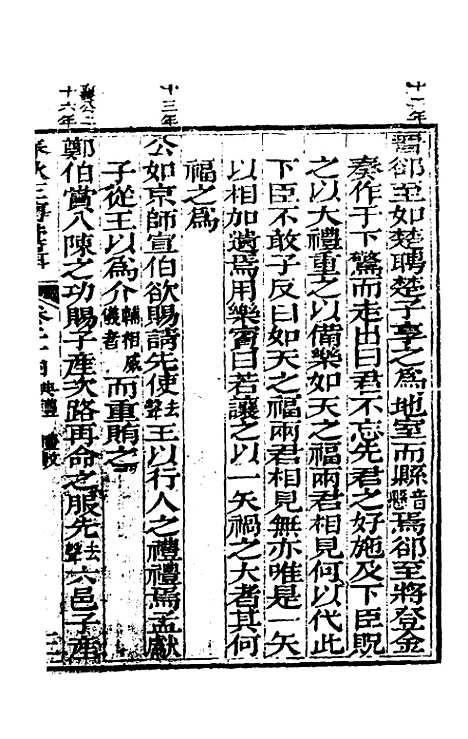 十二年
晉郤至如楚聘楚子享之爲地室而縣音懸焉郤至將登金
奏作于下驚而走出曰君不忘先君之好施及下臣貺
之以大禮重之以備樂如天之福兩君相見何以代此
下臣不敢子反曰如天之福兩君相見無亦唯是一矢
以相加遺焉用樂賓曰若讓之以一矢禍之大者其何
福之爲
十三年
公如京師宣伯欲賜請先使去聲王以行人之禮禮焉孟獻
子從王以爲介輔相威儀者而重賄之
襄公二十六年
鄭伯賞入陳之功賜子產次路再命之服先去聲六邑子產